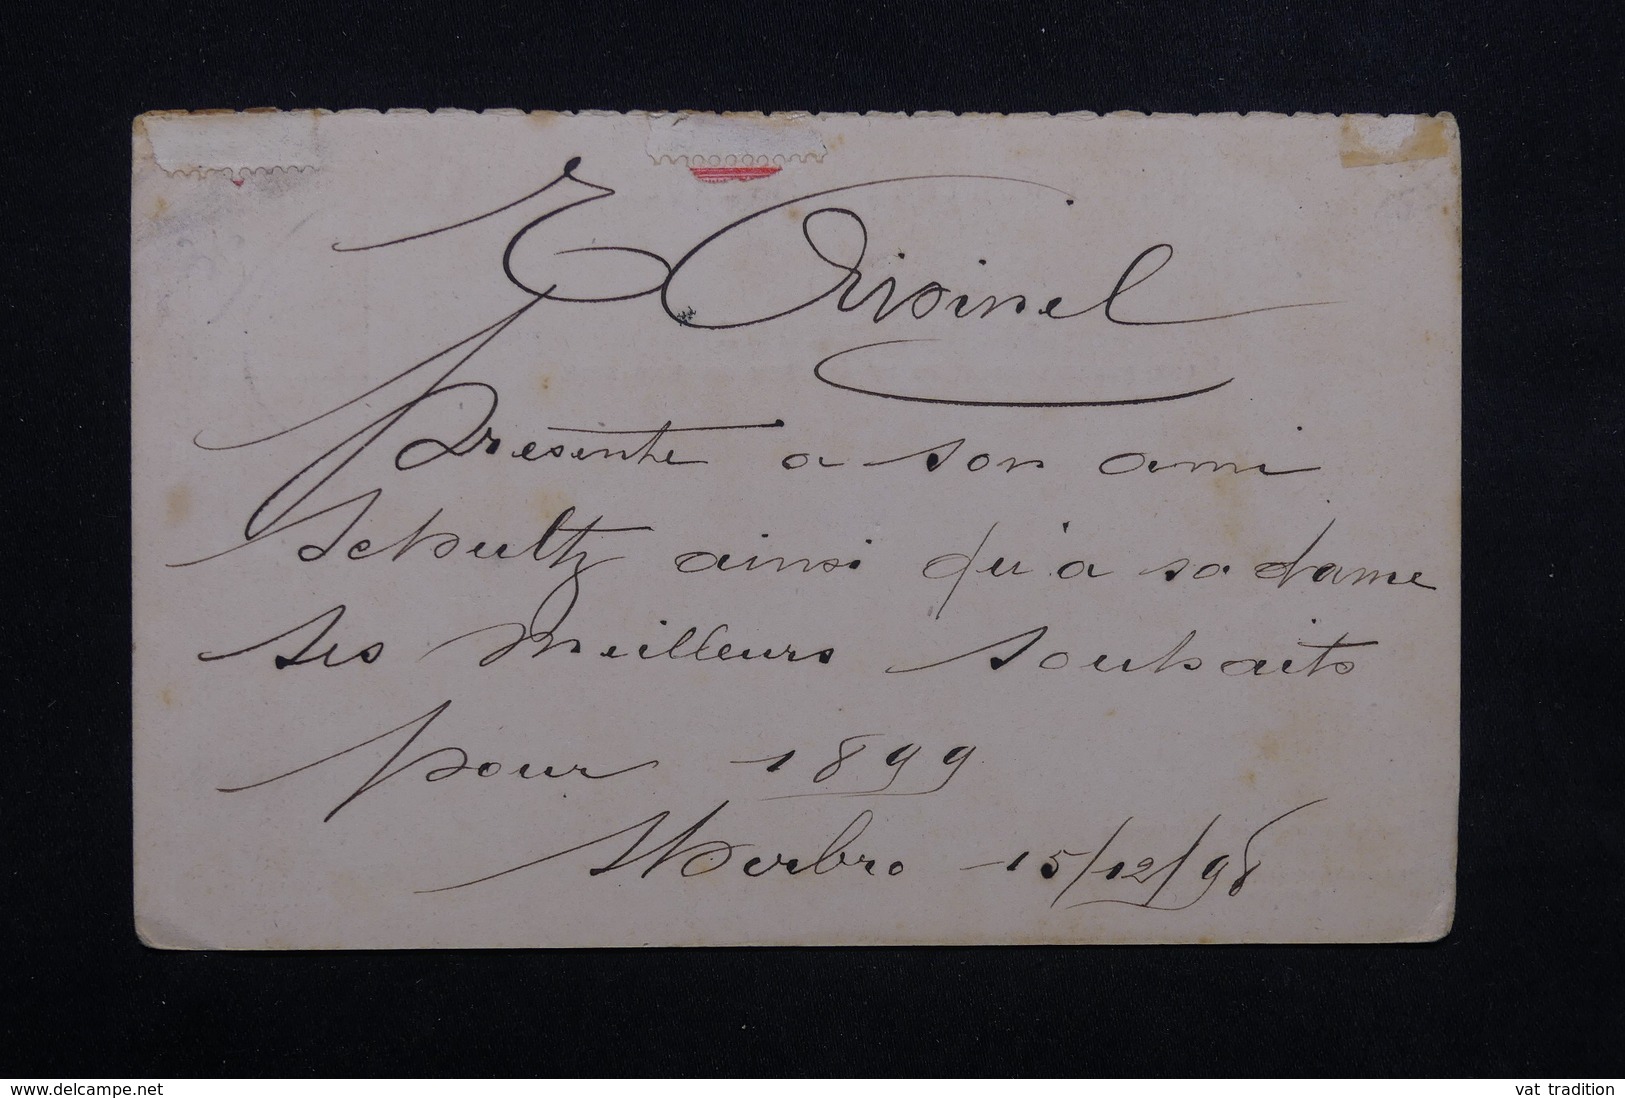 E Orsinel
présente a son ami
Schultz ainsi qu'a sa dame
ses meilleurs souhaits
pour 1899
Sherbro 15/12/98
www.delcampe.net
vat tradition